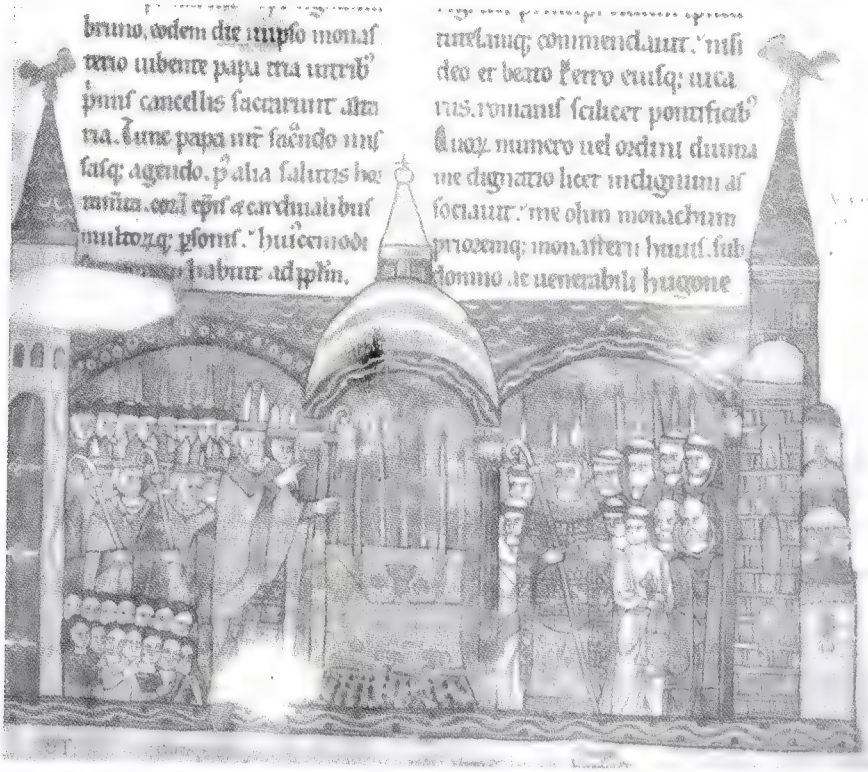 bruno. eodem die in ipso monas
terio iubente papa tria in trib'
primis cancellis sacrarunt alta
ria. Tunc papa int sacrando mis
sasq; agendo. p alia salutis hor
coram epis & cardinalibus
multorq; psonis. huiccemodi
habuit ad pplm.
tutelamq; commendauit. nisi
deo et beato Petro eiusq; uica
riis. romanis scilicet pontificib'
Quoꝝ numero uel ordini diuina
me dignatio licet indignum as
sociauit. me olim monachum
prioremq; monasterii huius. sub
domno ac uenerabili hugone